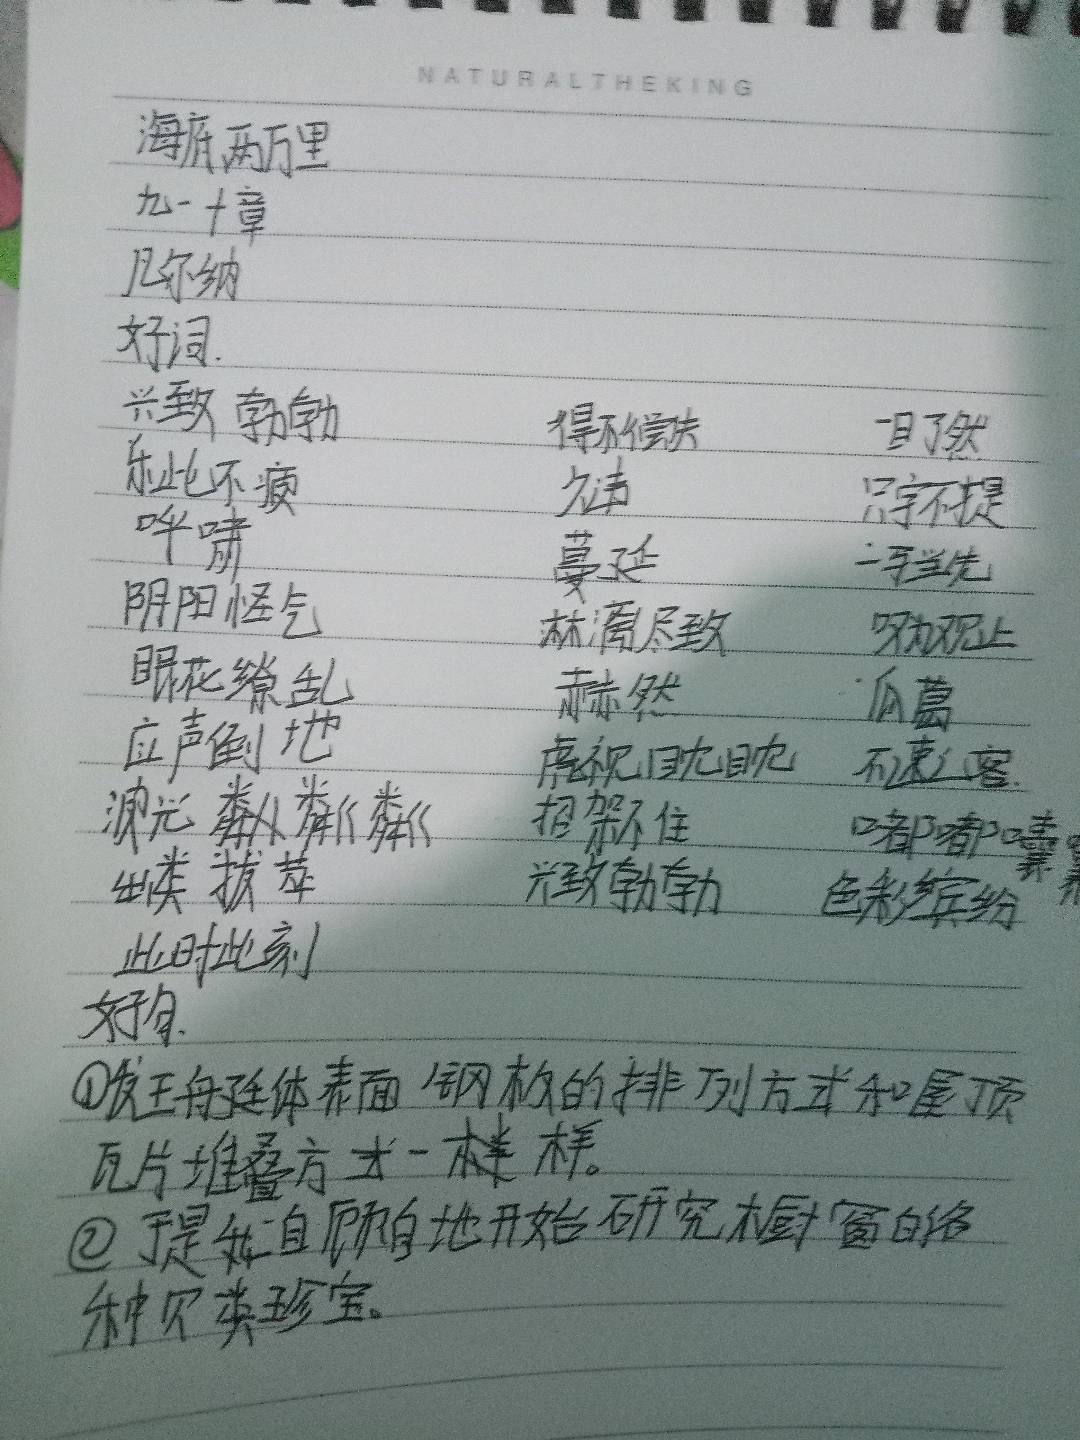 NATURALTHEKING
海底两万里
九一十章
凡尔纳
好词.
兴致勃勃 得不偿失 一目了然
乐此不疲 久违 只字不提
呼啸 蔓延 一马当先
阴阳怪气 淋漓尽致 叹为观止
眼花缭乱 赫然 瓜葛
应声倒地 虎视眈眈 不速之客.
波光粼粼粼 招架不住 嘟嘟囔囔
出类拔萃 兴致勃勃 色彩缤纷
此时此刻
好句.
①发王舟廷体表面钢板的排列方式和屋顶
瓦片堆叠方式一样。
②于是她自顾自地开始研究橱窗的各
种贝类珍宝。